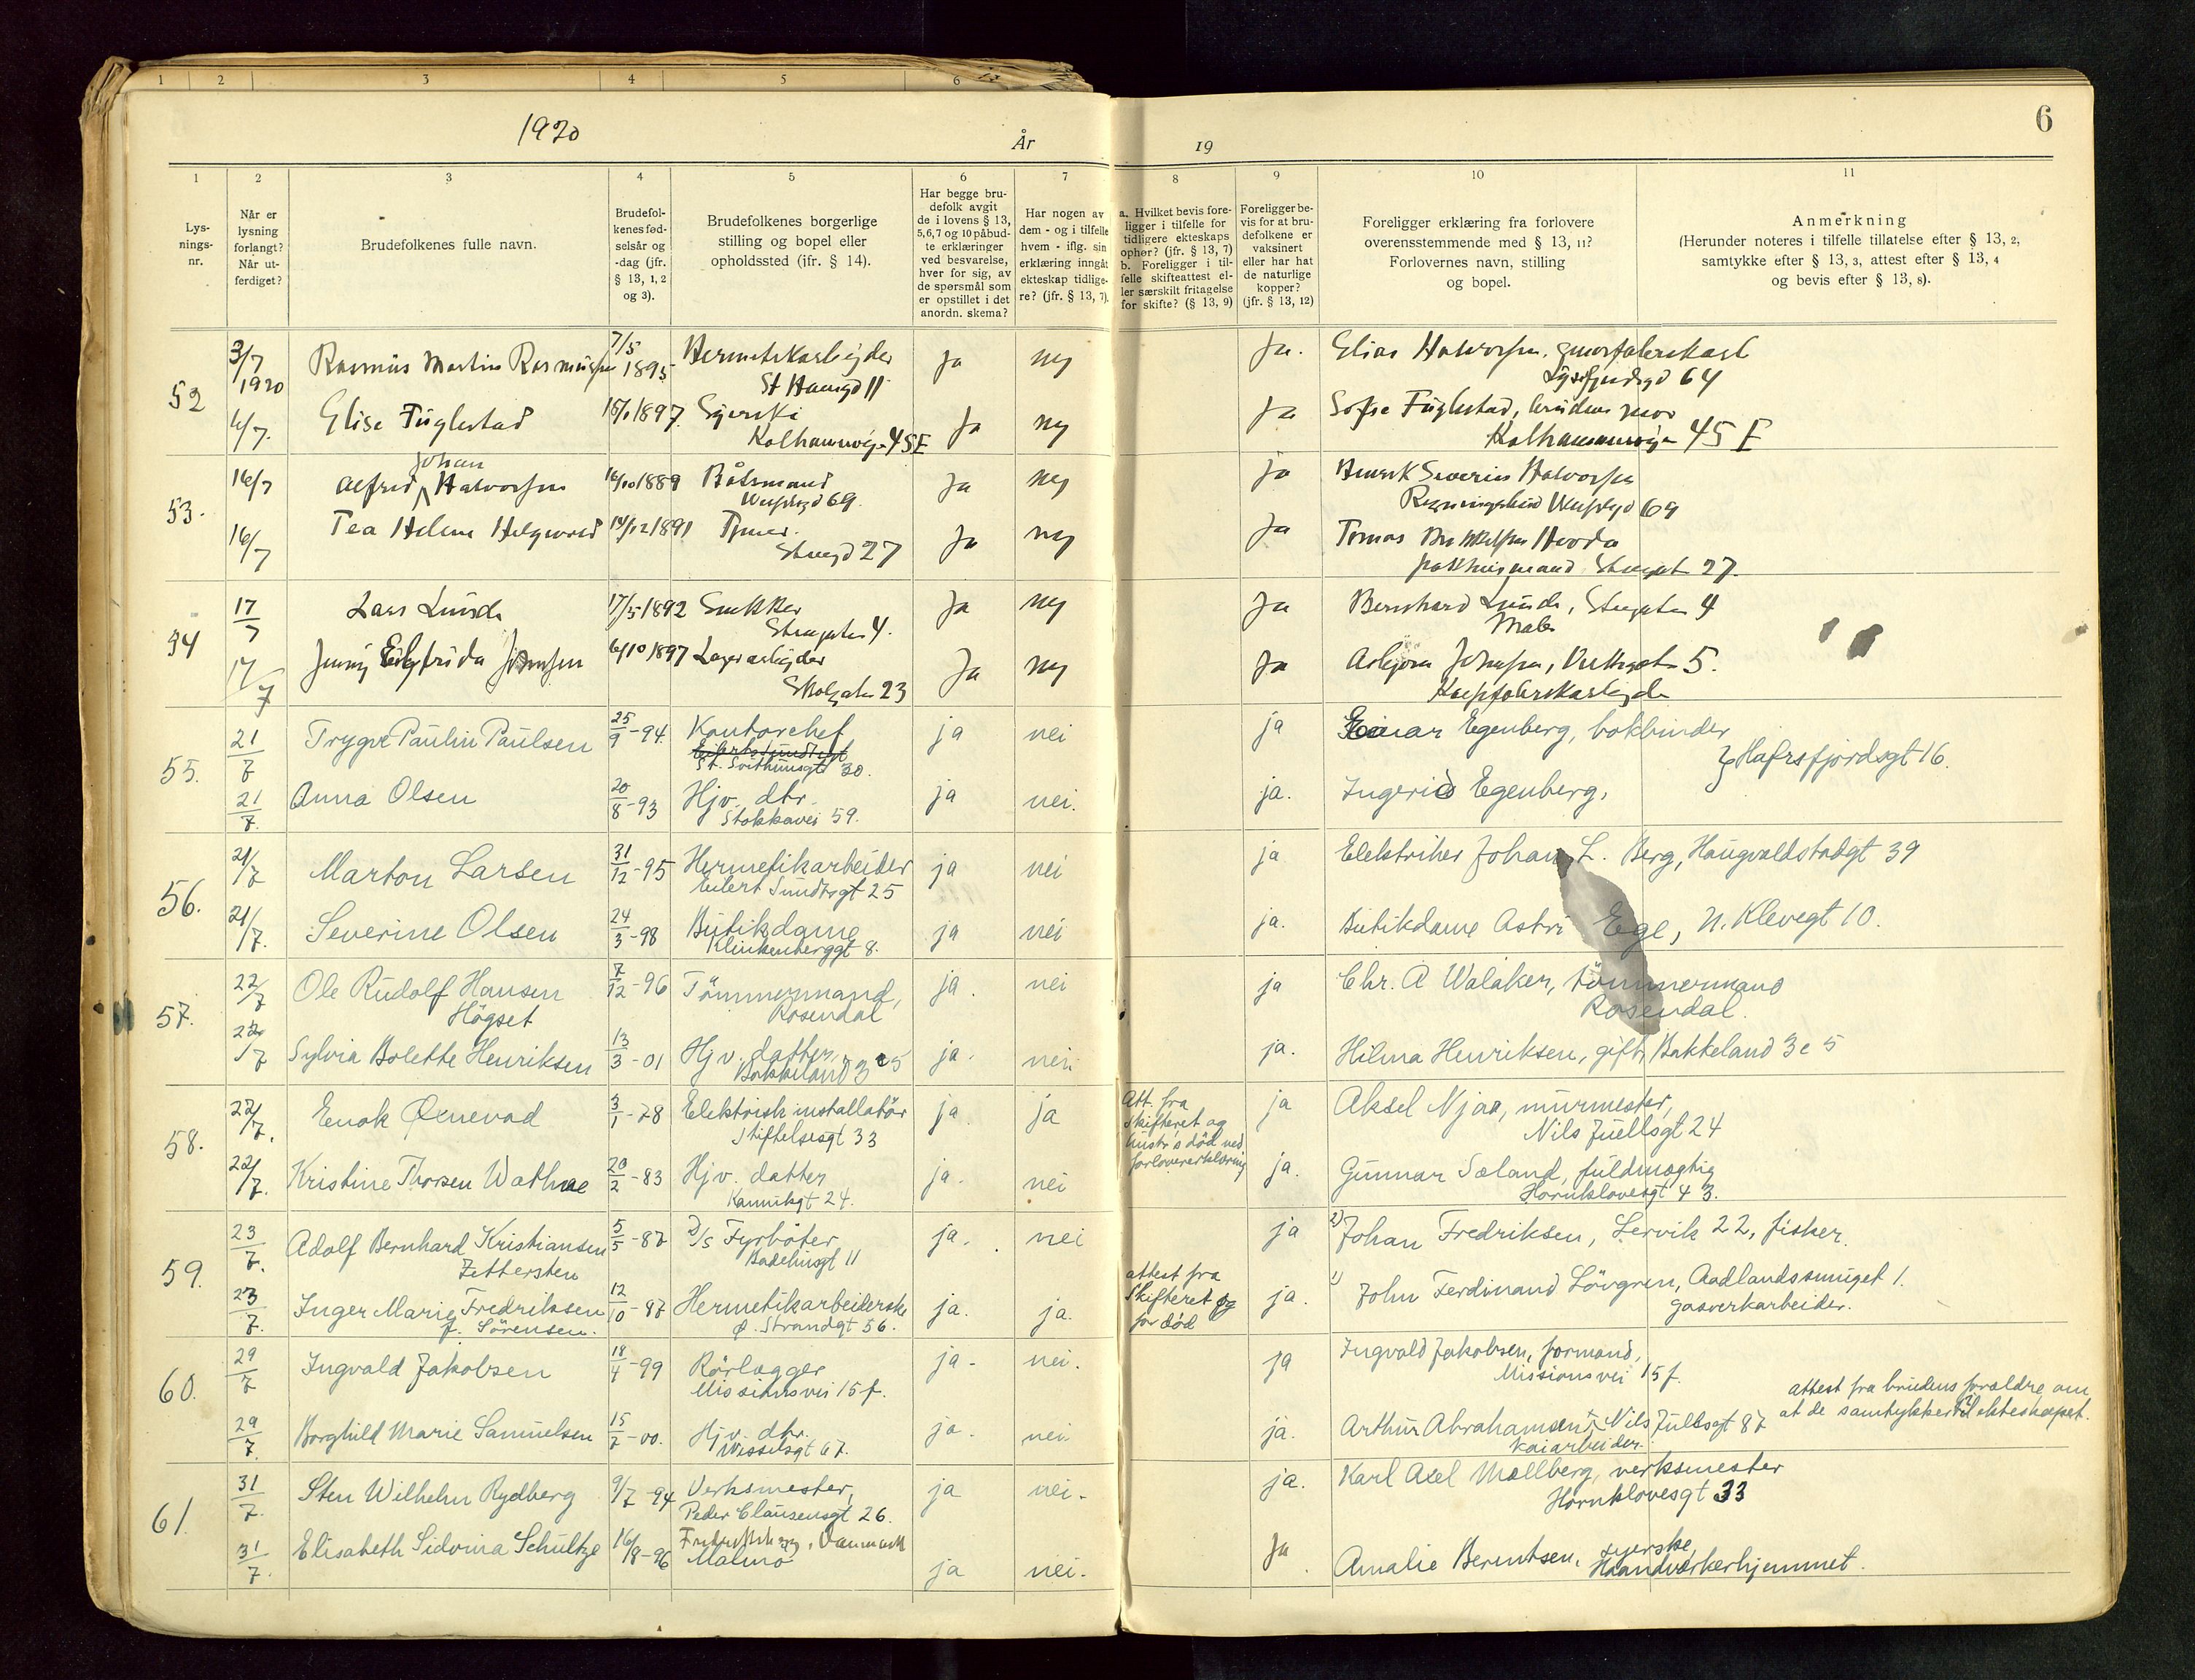 1 2 3 4 5 6
1920
År
19
6
1
2
3
4
5
6
7
8
9
10
11
Lysnings-nr.
Når er lysning forlangt? Når utferdiget?
Brudefolkenes fulle navn.
Brudefolkenes fødselsår og -dag (jfr. § 13, 1, 2 og 3).
Brudefolkenes borgerlige stilling og bopel eller opholdssted (jfr. § 14).
Har begge brudefolk avgit de i lovens § 13, 5, 6, 7 og 10 påbudte erklæringer ved besvarelse, hver for sig, av de spørsmål som er opstillet i det anordn. skema?
Har nogen av dem - og i tilfelle hvem - iflg. sin erklæring inngåt ekteskap tidligere? (jfr. § 13, 7).
a. Hvilket bevis foreligger i tilfelle for tidligere ekteskaps ophør? (jfr. § 13, 7) b. Foreligger i tilfelle skifteattest eller særskilt fritagelse for skifte? (§ 13, 9)
Foreligger bevis for at brudefolkene er vaksinert eller har hat de naturlige kopper? (jfr. § 13, 12)
Foreligger erklæring fra forlovere overensstemmende med § 13, 11? Forlovernes navn, stilling og bopel.
Anmerkning (Herunder noteres i tilfelle tillatelse efter § 13, 2, samtykke efter § 13, 3, attest efter § 13, 4 og bevis efter § 13, 8).
52
3/7 1920 Rasmus Martin Rasmussen 7/5 1895 Hermetikarbejder Ja nej Ja. Elias Halvorsen
St Hansgd 11 64
6/7. Elise Fuglestad 1897. Syerske Ja nej Ja Sofie Fuglestad, brudens mor
45 E 45 E
53.
16/7 Alfred Johan Halvorsen 1889 Båtsmand Ja nej ja Henrik Severin Halvorsen
69. 69
16/7 Tea Helene 14/12 1891 Tjener. Ja nej Ja Tomas
27 27.
54
17/7 Lars Lunde 17/5 1892 Snekker Ja nej Ja Bernhard Lunde, 4
4. Maler
17/7 Jenny 6/10 1897 Lagerarbejder Ja nej Ja 5.
Skolgaten 23
55.
21/7 Trygve Paulin Paulsen 25/9-94. Kontorchef ja nei ja Einar Egenberg, bokbinder
St. Svithunsgt 30. } Hafrsfjordsgt 16.
21/7. Anna Olsen 20/8-93 Hjv. dtr. ja nei. ja. Ingerid Egenberg,
Stokkavei 59.
56.
21/7 Marton Larsen 31/12-95 Hermetikarbeider ja nei ja Elektriker Johan L. Berg, Haugvaldstadgt 39
Eilert Sundtsgt 25
21/7. Severine Olsen 24/3-98 Butikdame ja nei ja. Butikdame Astri Ege, N. Klevegt 10.
Klinkenberggt 8.
57.
22/7 Ole Rudolf Hansen 7/12-96 Tömmermand, ja. nei ja Chr. A Walaker, tömmermand
Högset Rosendal Rosendal.
22/7 Sylvia Bolette Henriksen 13/3-01 Hjv. datter, ja. nei ja. Hilma Henriksen, gift, Bakkeland 3 e 5
Bakkeland 3 e 5
58.
22/7. Enok Qvnevad 3/1-78 Elektrisk installatör ja ja Att. fra ja Aksel Njaa, murmester,
Stiftelsesgt 33 skifteret og Nils Juellsgt 24
hustr's död ved
forlovererklæring
22/7. Kristine Thorsen Wathne 20/2-83 Hjv. datter ja. nei ja. Gunnar Sæland, fuldmægtig
Kannikgt 24. Hornklovesgt 43.
59.
23/7. Adolf Bernhard Kristiansen 5/5-87 D/s Fyrböter ja. nei ja 2) Johan Fredriksen, Lervik 22, fisker.
Zettersten Badehusgt 11
23/7. Inger Marie Fredriksen 12/10-87 Hermetikarbeiderske ja. ja. attest fra ja. 1) John Ferdinand Lövgren, Aadlandssmuget 1.
f. Sörensen. Ø. Strandgt 56. Skifteret og gasverkarbeider.
for död
60.
29/7 Ingvald Jakobsen 18/4-99 Rörlægger ja- nei. ja Ingvald Jakobsen, formand,
Missionsvei 15 f. Missionsvei 15 f.
attest fra brudens forældre om
at de samtykker til ekteskapet.
29/7. Borghild Marie Samuelsen 15/7-00. Hjv. dtr. ja. nei. ja. Arthur Abrahamsen, Nils Juellsgt 87
Wesselsgt 67. kaiarbeider.
61.
31/7. Sten Wilhelm Rydberg 9/7-94 Verksmester, ja nei. ja. Karl Axel Mællberg, verksmester
Peder Clausensgt 26. Hornklovesgt 33
31/7. Elisabeth Sidonia Schultze 16/8-96 Danmark ja nei. Ja. Amalie Berentsen, syerske,
Malmö Haandverkerhjemmet.